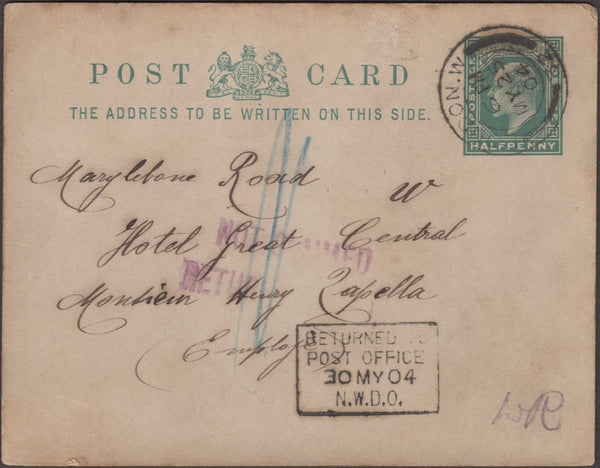 POST CARD
THE ADDRESS TO BE WRITTEN ON THIS SIDE.
POSTAGE
HALFPENNY
MY 25
04
Marylebone Road W
Hotel Great Central
Monsieur Henry Zapella
(Employé)
NOT CLAIMED
RETURNED TO
POST OFFICE
30 MY 04
N.W.D.O.